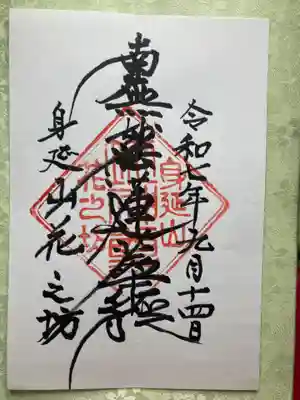 令和七年元月十四日
南無妙法蓮華經
身延山花之坊
身延山
花之坊